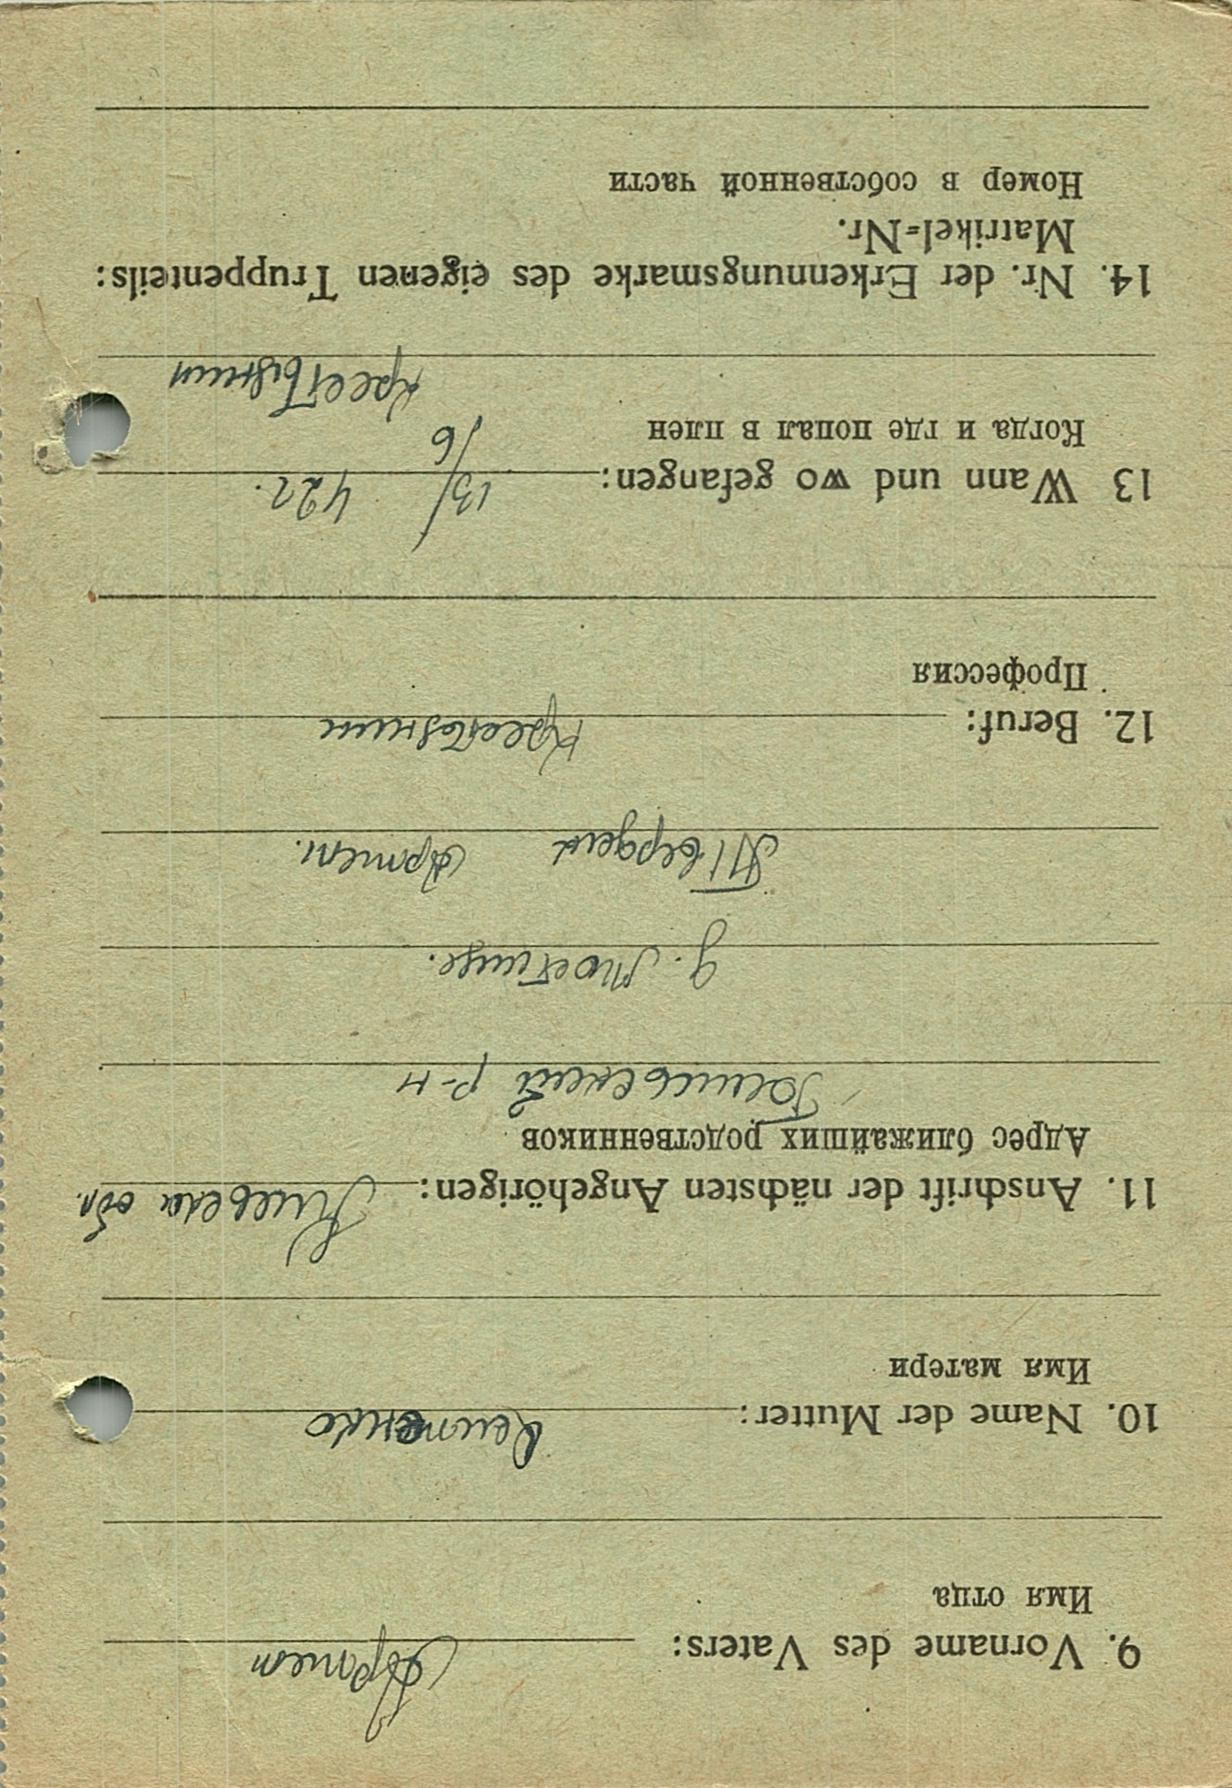 9. Vorname des Vaters: Артем
Имя отца
10. Name der Mutter:
Имя матери
11. Anschrift der nächsten Angehörigen: обл.
Адрес ближайших родственников
р-н
д.
Артем.
12. Beruf: Крестьянин
Профессия
13 Wann und wo gefangen: 13/6 42 г.
Когда и где попал в плен
Крестьянин
14. Nr. der Erkennungsmarke des eigenen Truppenteils:
Matrikel=Nr.
Номер в собственной части